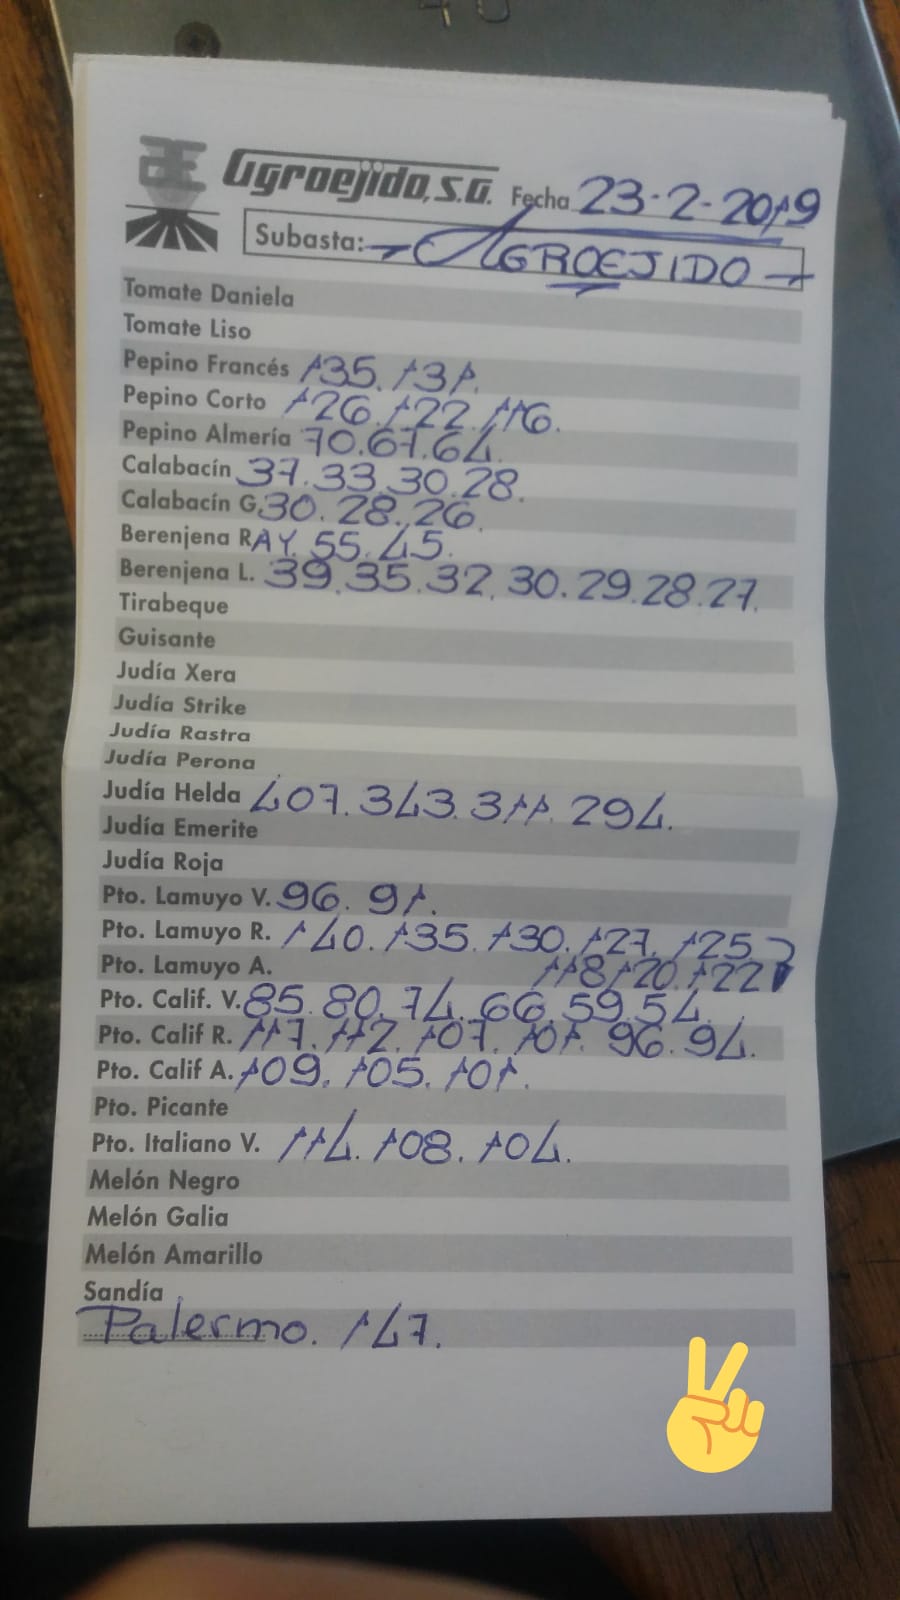 40
AE Agroejido, S.G. Fecha 23-2-2019
Subasta: - AGROEJIDO -
Tomate Daniela
Tomate Liso
Pepino Francés 135. 131.
Pepino Corto 126. 122. 116.
Pepino Almería 70.67.64.
Calabacín 37.33.30.28.
Calabacín G. 30.28.26.
Berenjena RAY. 55.45.
Berenjena L. 39.35.32.30.29.28.27.
Tirabeque
Guisante
Judía Xera
Judía Strike
Judía Rastra
Judía Perona
Judía Helda 407.343.311.294.
Judía Emerite
Judía Roja
Pto. Lamuyo V. 96.91.
Pto. Lamuyo R. 140.135.130.127.125
Pto. Lamuyo A. 118 120.122
Pto. Calif. V. 85.80.74.66.59.54.
Pto. Calif R. 117.112.107.101.96.94.
Pto. Calif A. 109.105.101.
Pto. Picante
Pto. Italiano V. 114.108.104.
Melón Negro
Melón Galia
Melón Amarillo
Sandía
Palermo. 147.